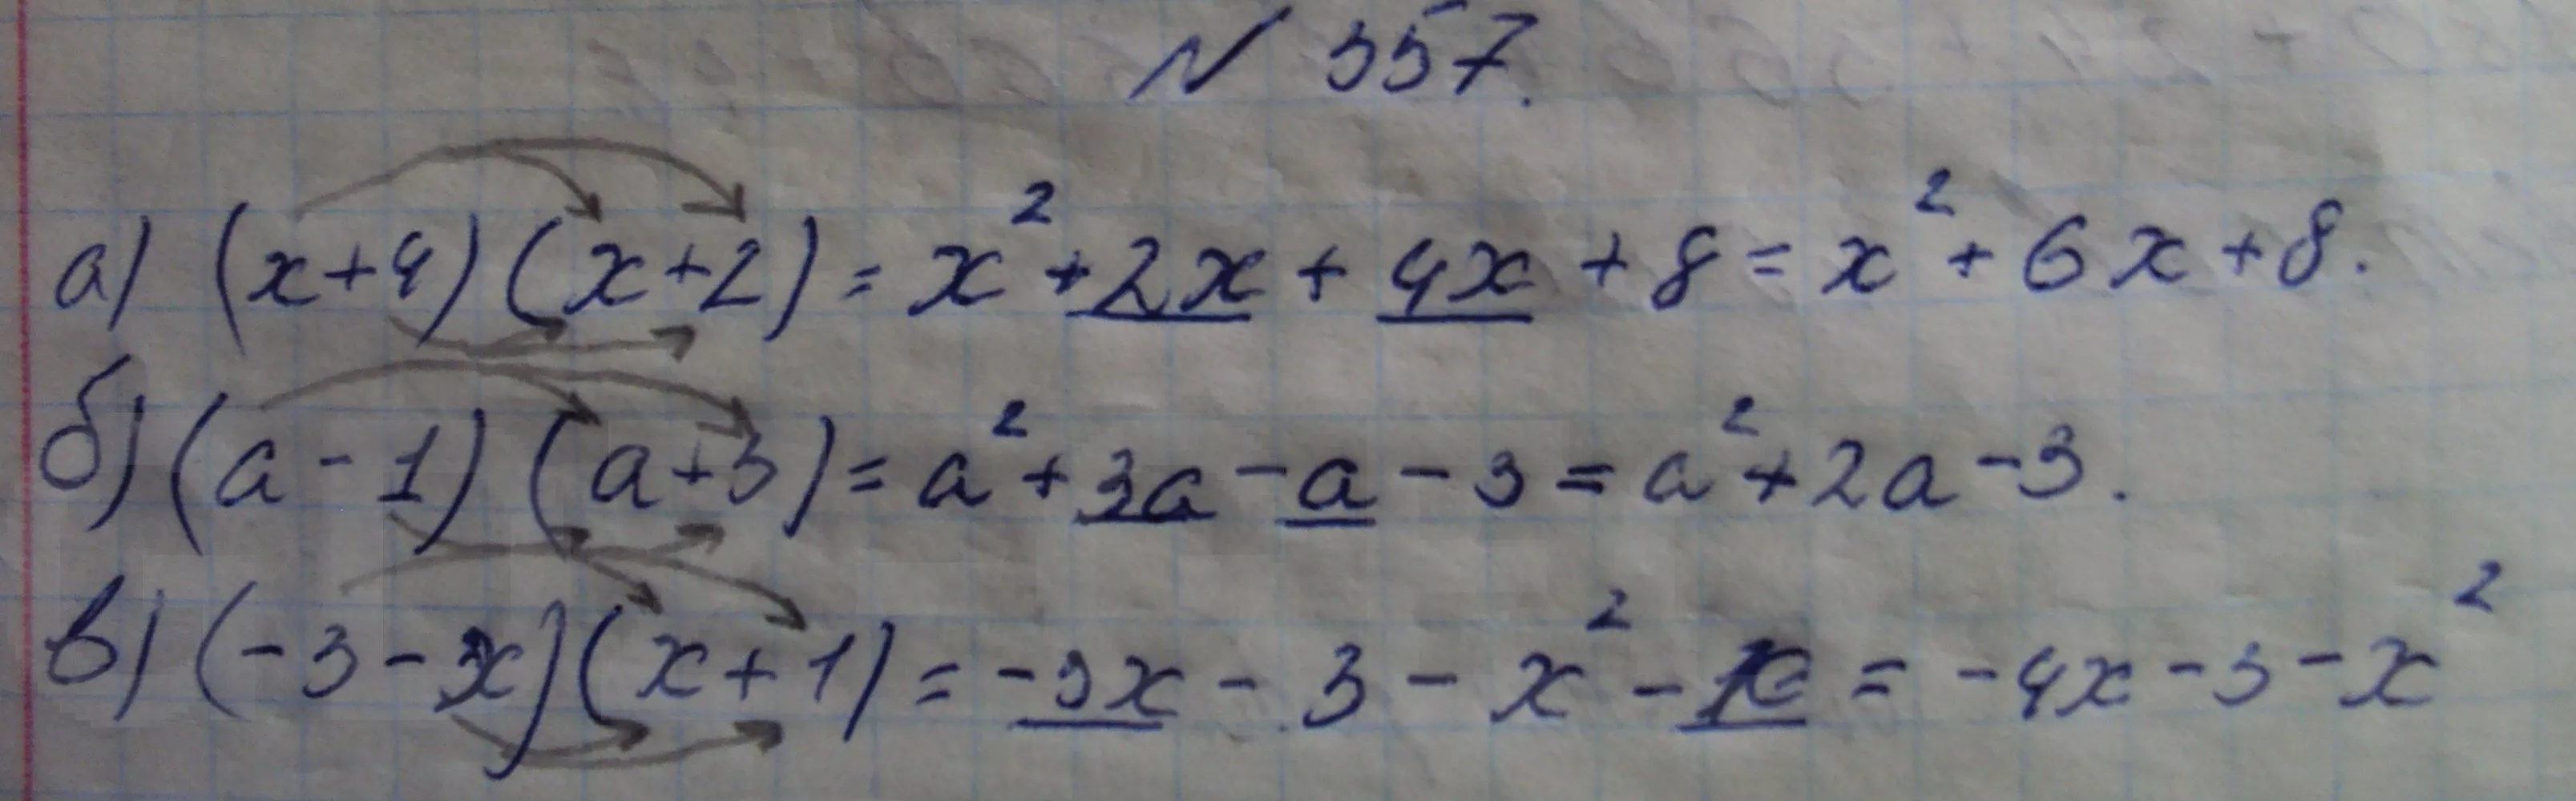 № 557.
а) (x+4)(x+2) = x² + 2x + 4x + 8 = x² + 6x + 8.
б) (a - 1)(a+3) = a² + 3a - a - 3 = a² + 2a - 3.
в) (-3-x)(x+1) = -3x - 3 - x² - x = -4x - 3 - x²